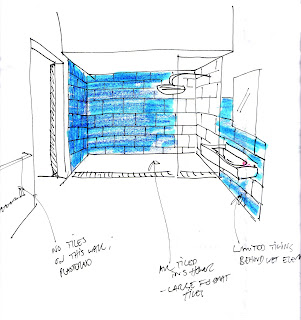 NO TILES
ON THIS WALL,
PLASTERED
ALL TILED
IN SHOWER
- LARGE FORMAT
TILES
LIMITED TILING
BEHIND WET ELEM